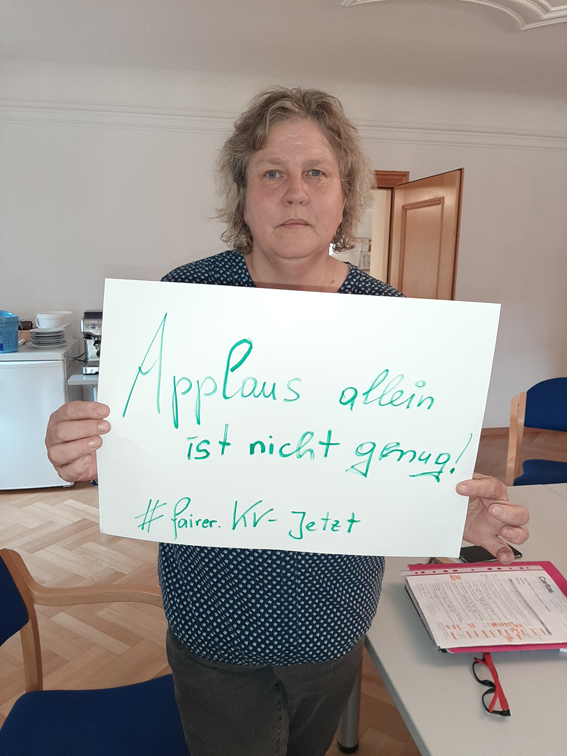 Applaus allein
ist nicht genug!
#fairer.KV-Jetzt
Caritas